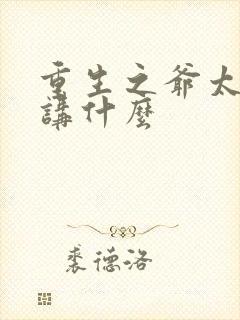 重生之爺太
講什麼
裘德洛